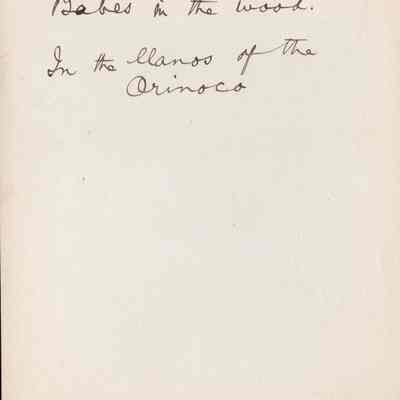 Babes in the wood.
In the llanos of the
Orinoco